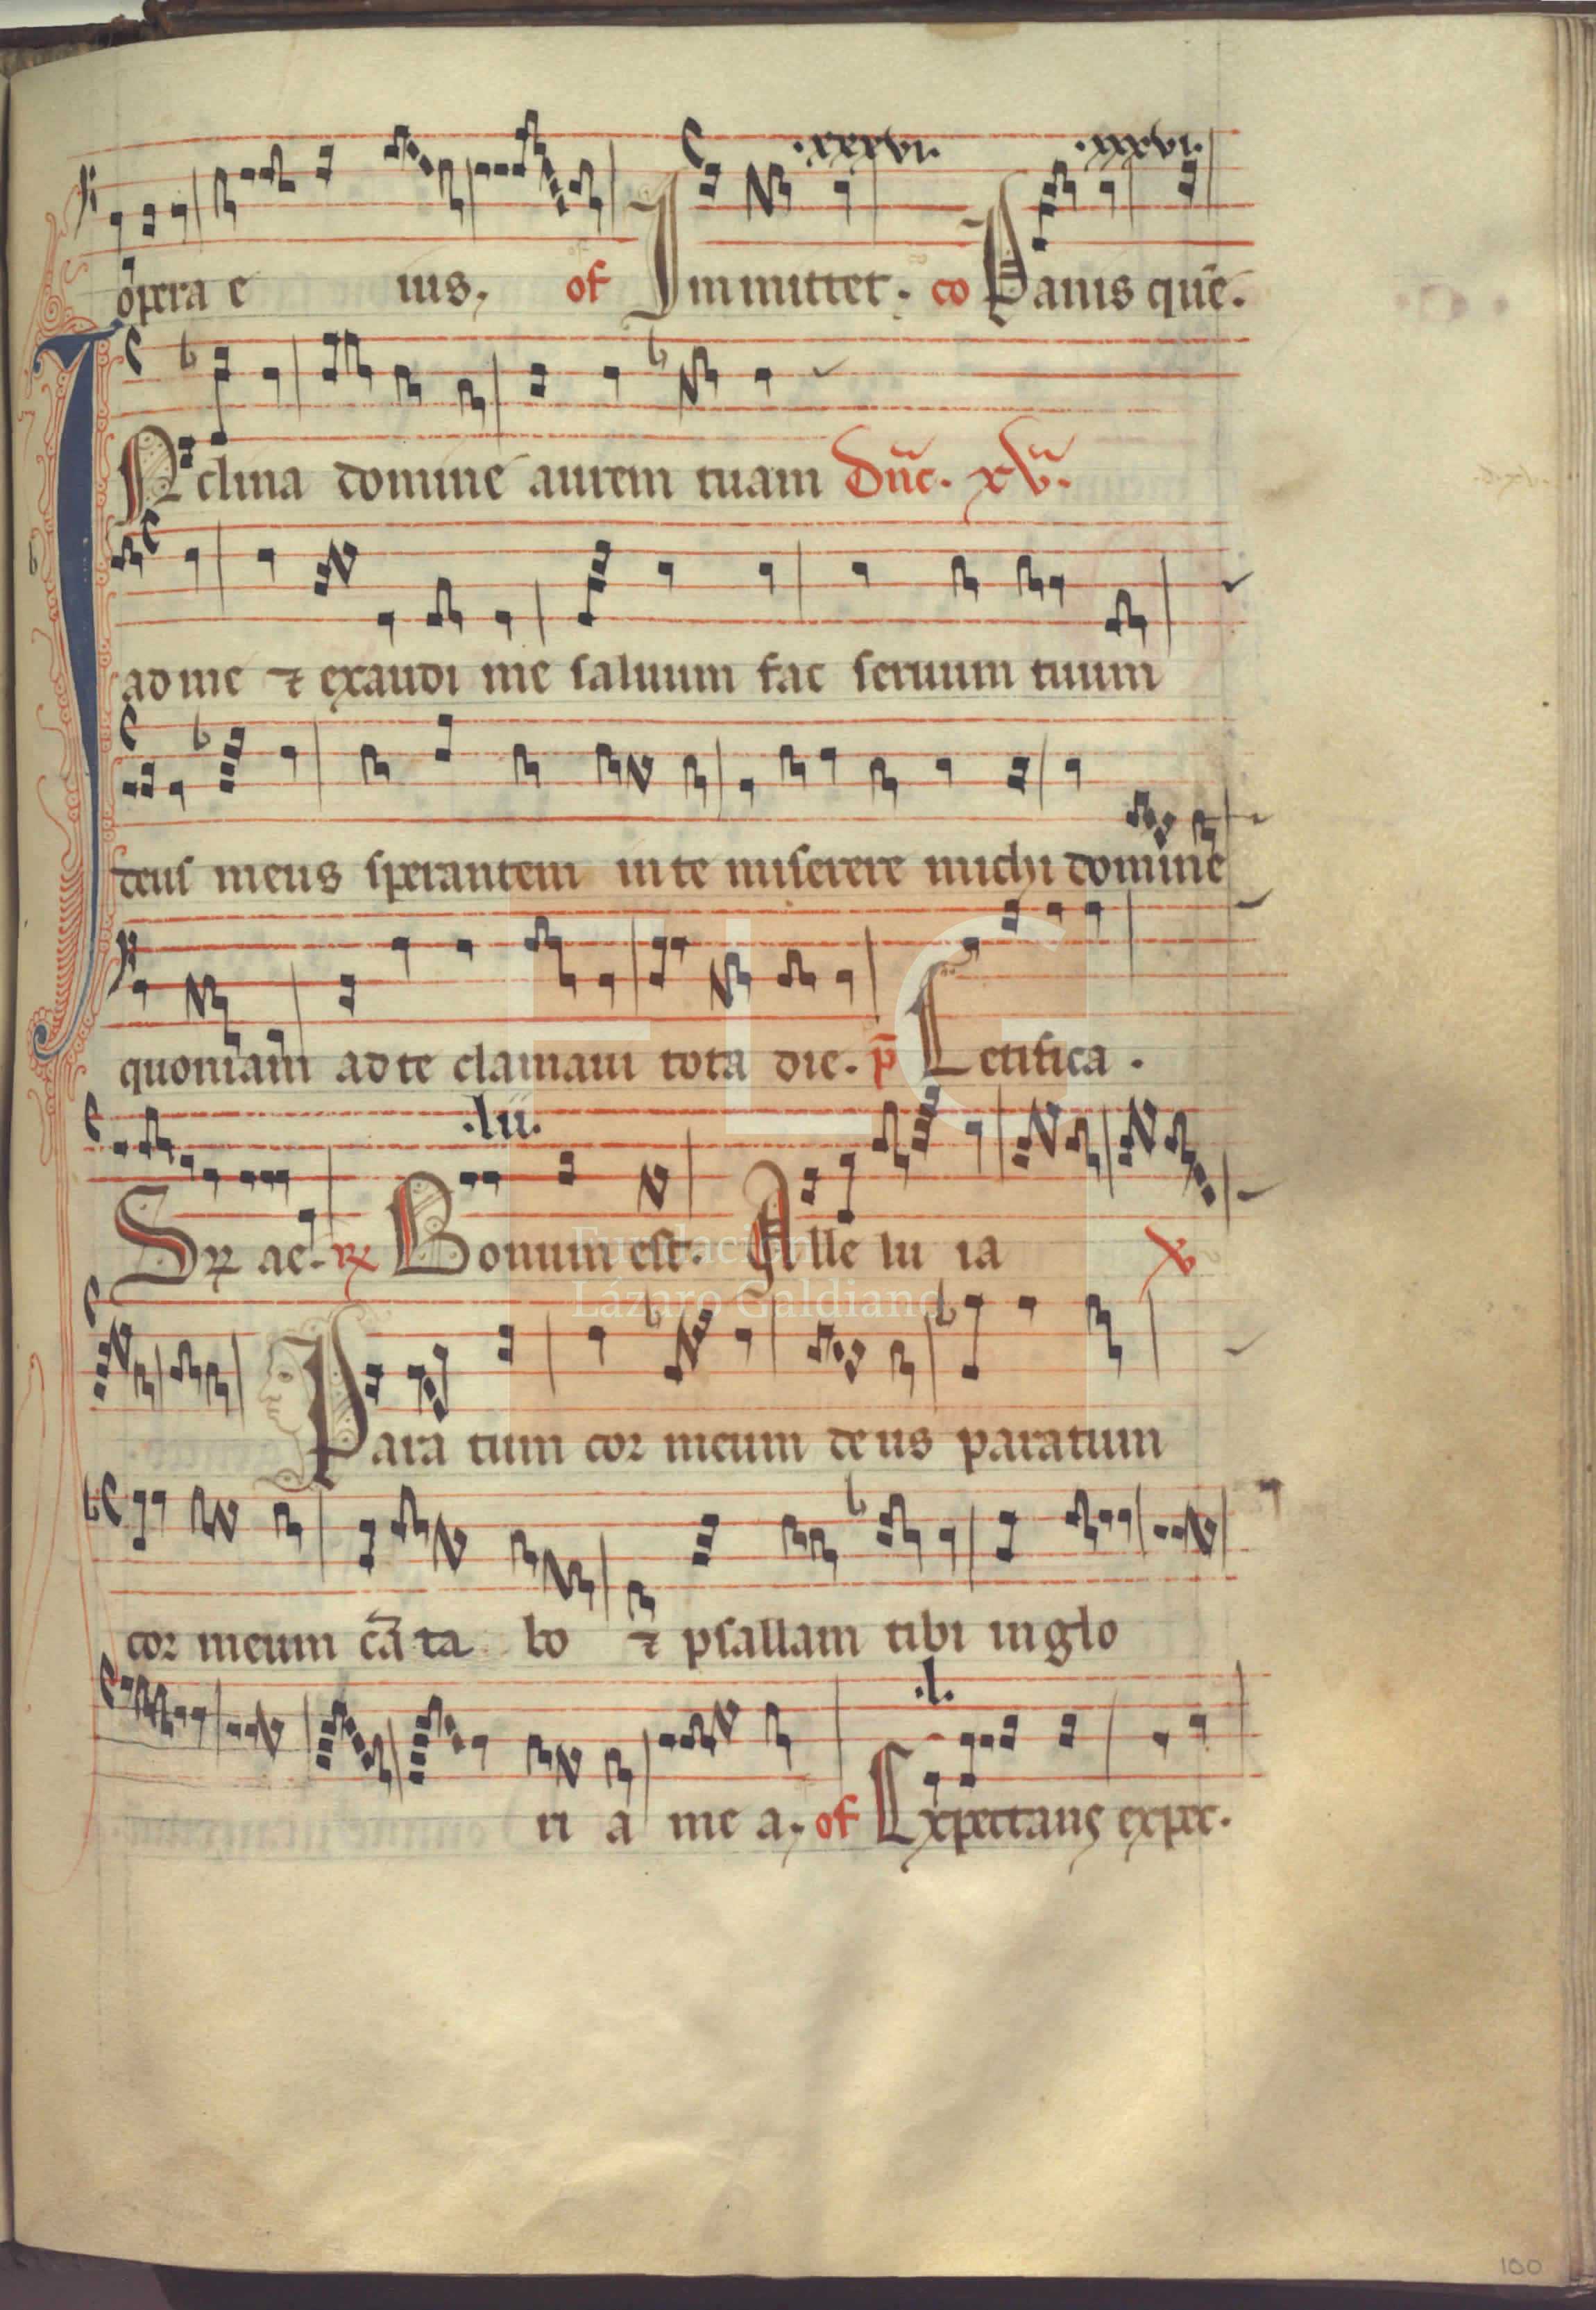 .xxxvi. .xxxvi.
opera e ius, of Immittet. co Panis quē.
INclina domine aurem tuam Dn̄c. xv̄.
ad me ⁊ exaudi me saluum fac seruum tuum
deus meus sperantem in te miserere michi domine
quoniam ad te clamaui tota die. p̄ Letifica.
.lii.
ac. Bonum est. Alle lu ia
Fundación
Lázaro Galdiano
Para tum cor meum deus paratum
cor meum cāta bo ⁊ psallam tibi in glo
.l.
ri a me a, of Expectans expec.
FLG
100